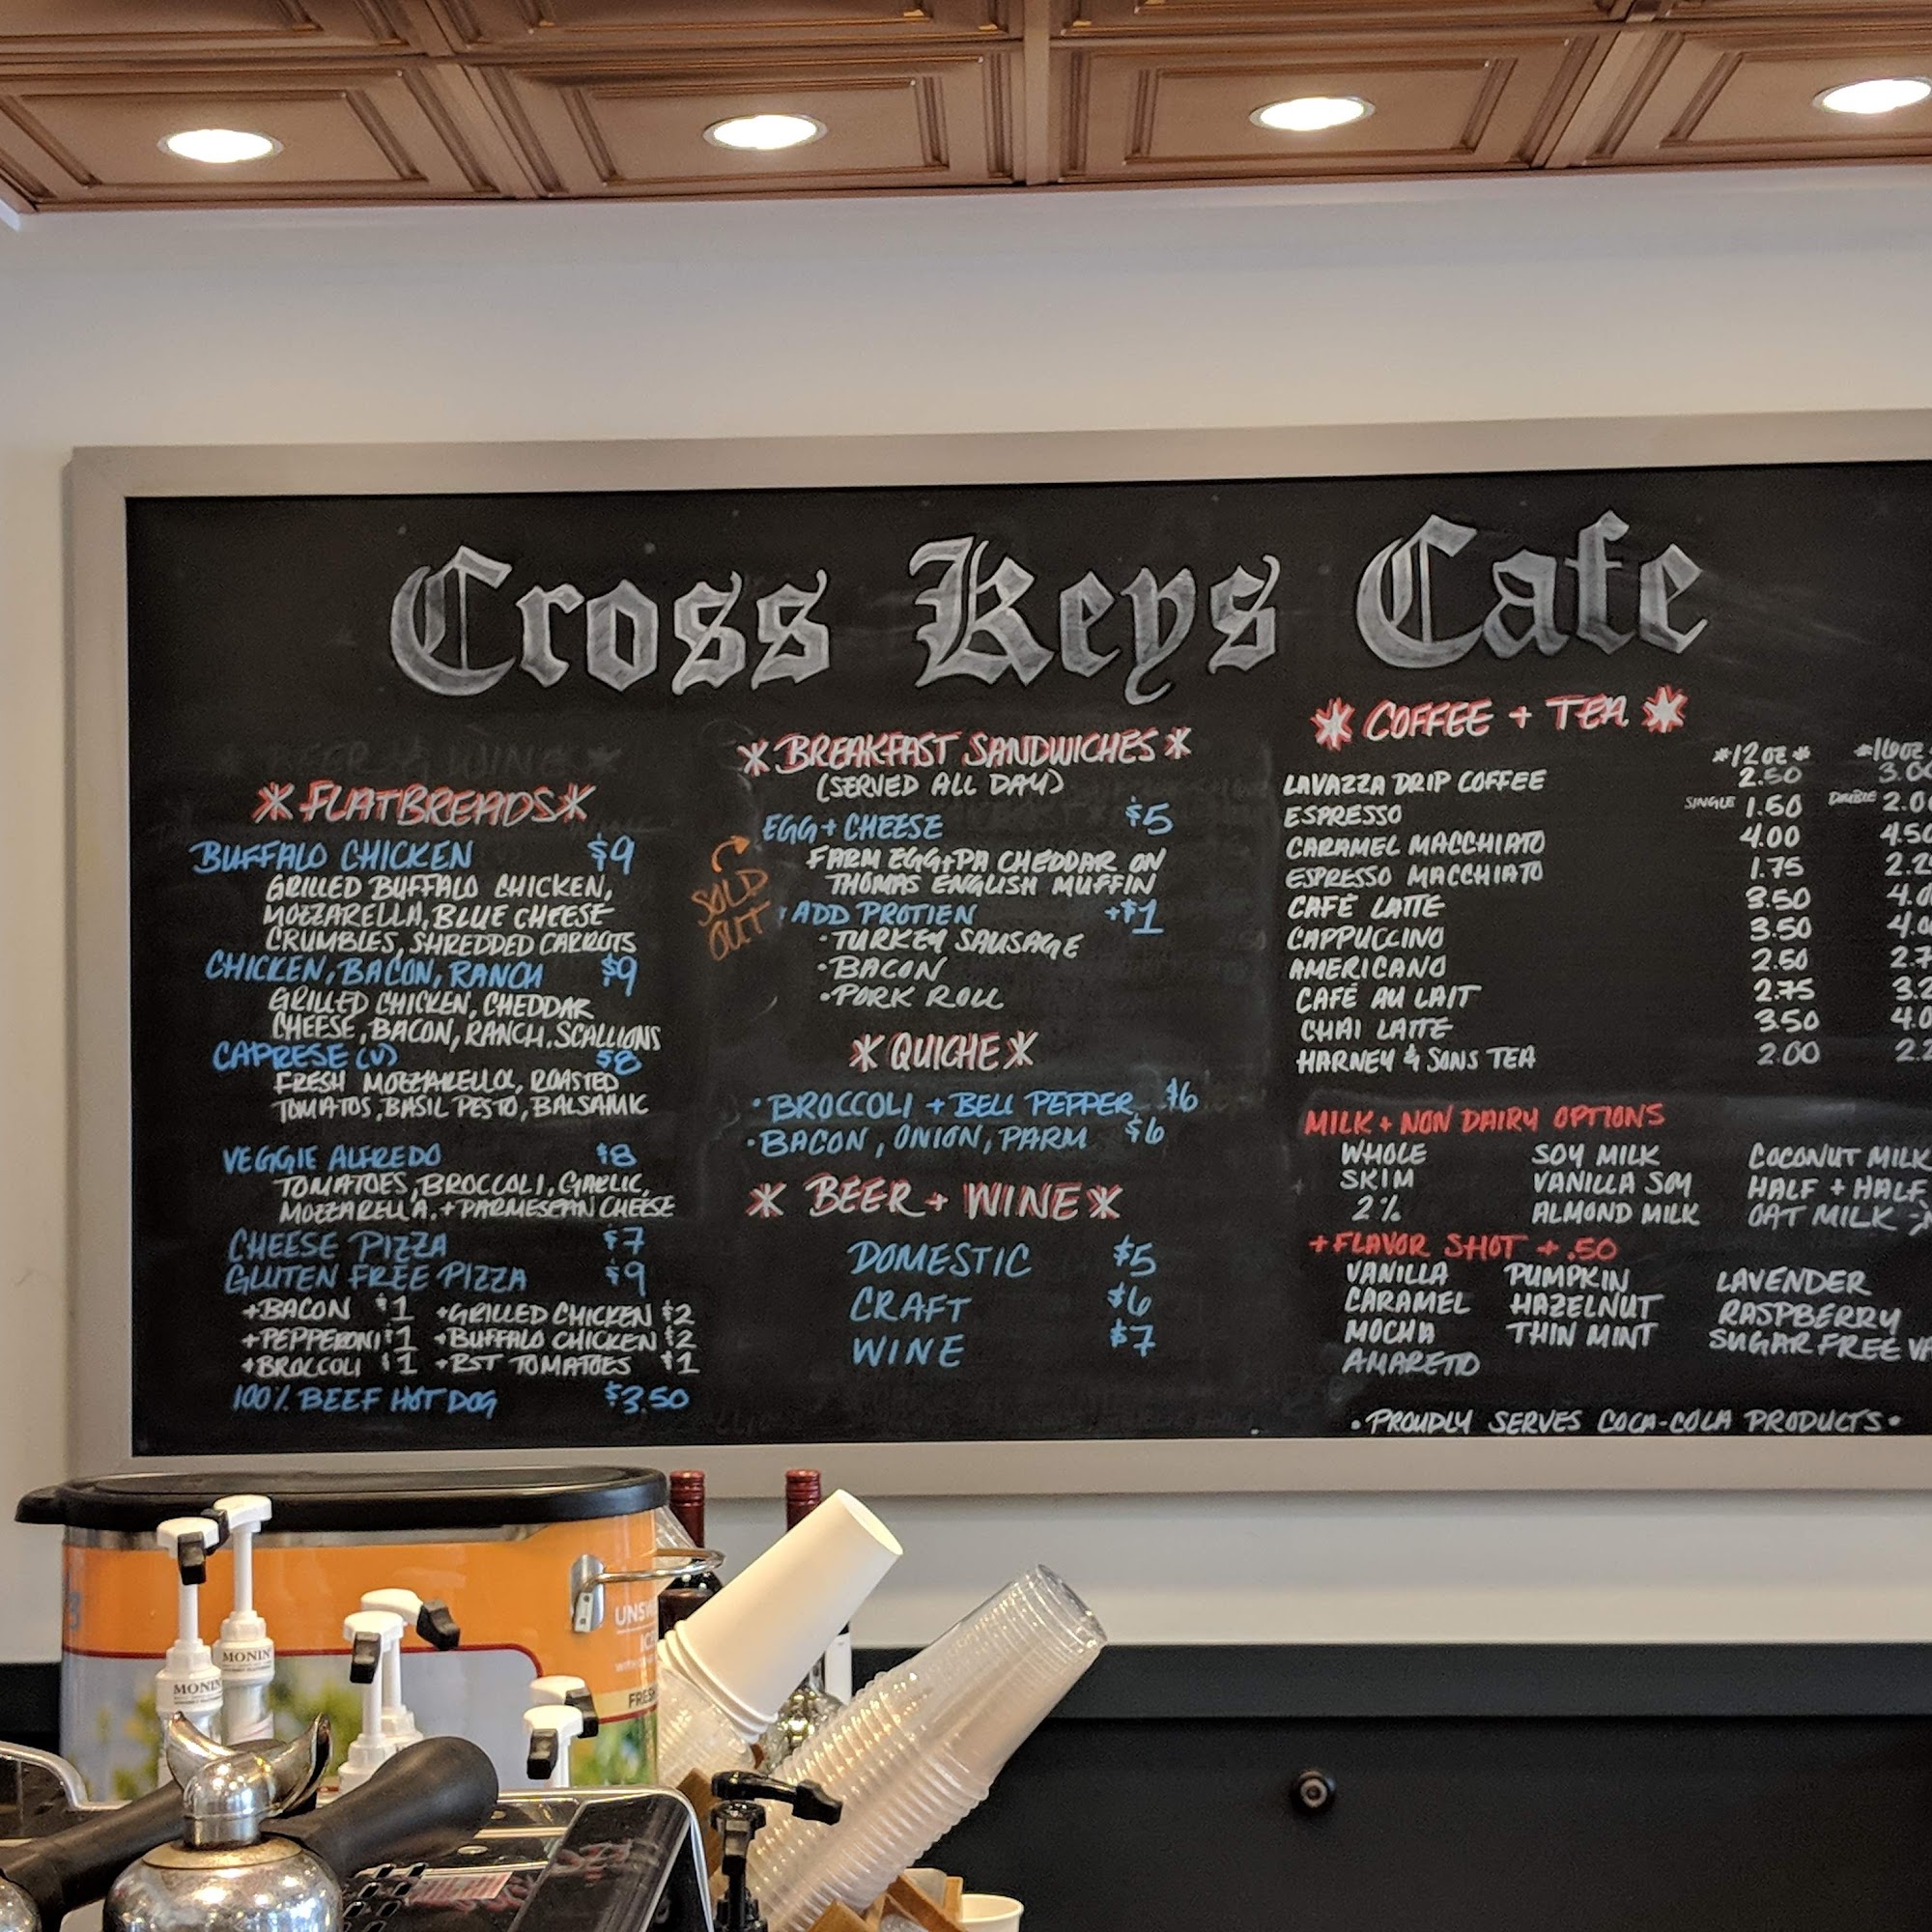 Cross Keys Cafe
BEER & WINE
*FLATBREADS*
BUFFALO CHICKEN $9
GRILLED BUFFALO CHICKEN,
MOZZARELLA, BLUE CHEESE
CRUMBLES, SHREDDED CARROTS
CHICKEN, BACON, RANCH $9
GRILLED CHICKEN, CHEDDAR
CHEESE, BACON, RANCH, SCALLIONS
CAPRESE (V) $8
FRESH MOZZARELLA, ROASTED
TOMATOS, BASIL PESTO, BALSAMIC
VEGGIE ALFREDO $8
TOMATOES, BROCCOLI, GARLIC,
MOZZARELLA, + PARMESEAN CHEESE
CHEESE PIZZA $7
GLUTEN FREE PIZZA $9
+BACON $1 +GRILLED CHICKEN $2
+PEPPERONI $1 +BUFFALO CHICKEN $2
+BROCCOLI $1 +RST TOMATOES $1
100% BEEF HOT DOG $3.50
*BREAKFAST SANDWICHES*
(SERVED ALL DAY)
EGG + CHEESE $5
FARM EGG + PA CHEDDAR ON
THOMAS ENGLISH MUFFIN
SOLD
OUT
ADD PROTIEN +$1
•TURKEY SAUSAGE
•BACON
•PORK ROLL
*QUICHE*
•BROCCOLI + BELL PEPPER $6
•BACON, ONION, PARM $6
* BEER + WINE *
DOMESTIC $5
CRAFT $6
WINE $7
* COFFEE + TEA *
*12 OZ* *16 OZ
LAVAZZA DRIP COFFEE 2.50 3.0
ESPRESSO SINGLE 1.50 DOUBLE 2.0
CARAMEL MACCHIATO 4.00 4.50
ESPRESSO MACCHIATO 1.75 2.2
CAFÉ LATTE 3.50 4.0
CAPPUCCINO 3.50 4.0
AMERICANO 2.50 2.7
CAFÉ AU LAIT 2.75 3.2
CHAI LATTE 3.50 4.0
HARNEY & SONS TEA 2.00 2.2
MILK + NON DAIRY OPTIONS
WHOLE SOY MILK COCONUT MILK
SKIM VANILLA SOY HALF + HALF
2% ALMOND MILK OAT MILK
+FLAVOR SHOT + .50
VANILLA PUMPKIN LAVENDER
CARAMEL HAZELNUT RASPBERRY
MOCHA THIN MINT SUGAR FREE VA
AMARETTO
•PROUDLY SERVES COCA-COLA PRODUCTS•
MONIN
MONIN
UNSW
ICE
FRESH